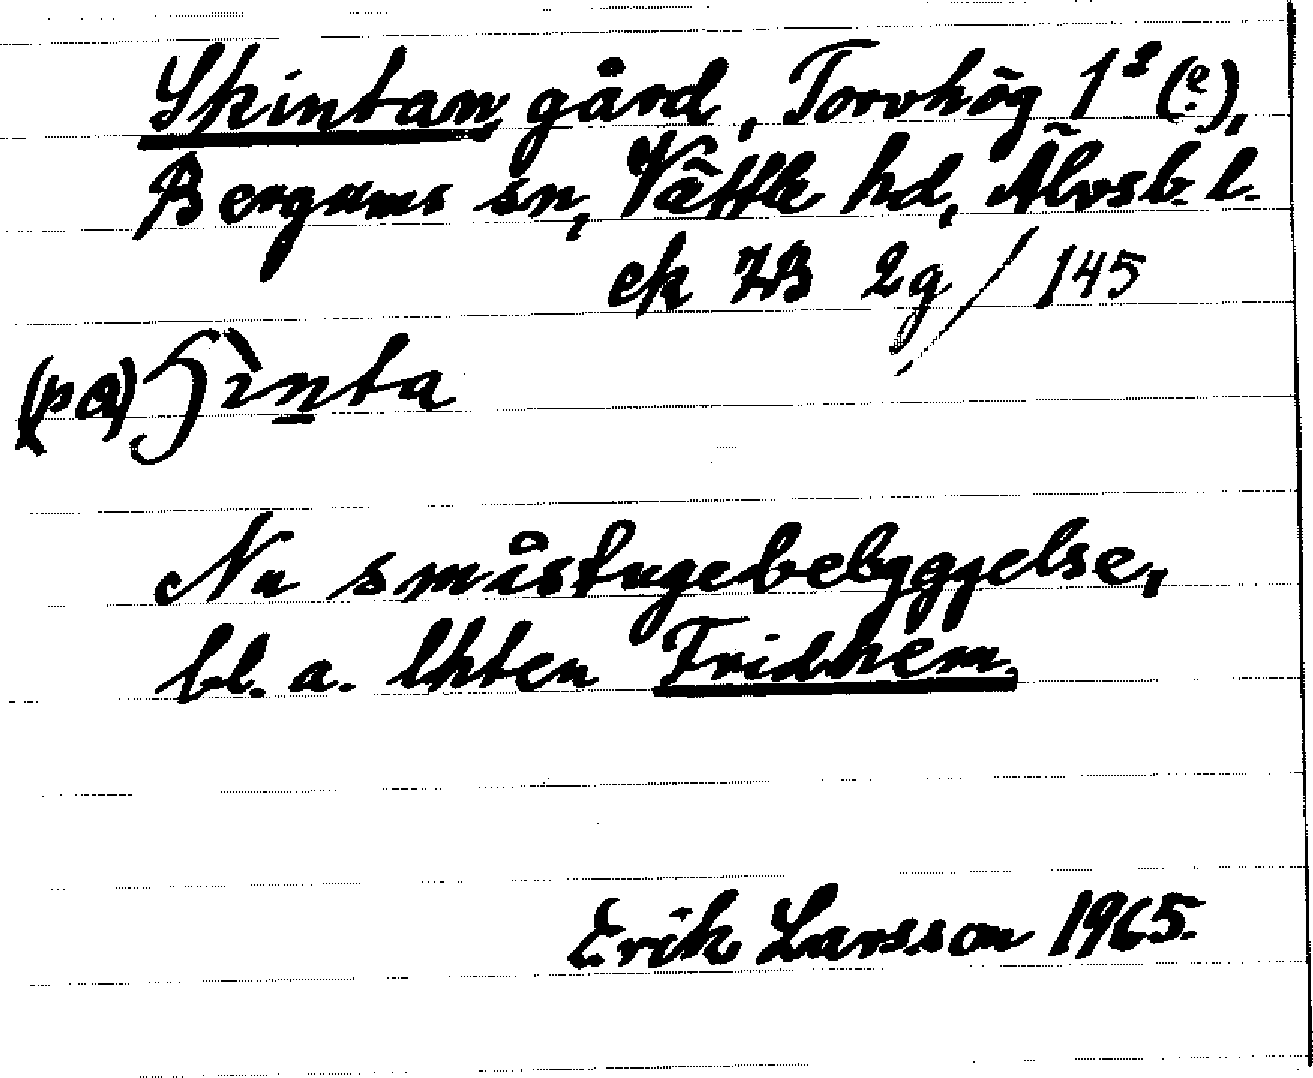 Skintan gård, Torvhög 1² (e),
Bergums sn, Vättle hd, Älvsb. l.
ek 7B 2g / 145
(på) ʃìnta
Nu småstugebebyggelse,
bl. a. lhten Fridhem.
Erik Larsson 1965.